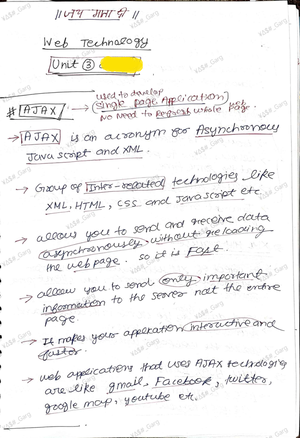 ||जय माता दी||
Web Technology
Unit ③
# AJAX → used to develop
(Single page Application)
No Need to Refresh whole page.
→ AJAX is an acronym for Asynchronous
Java script and XML.
→ Group of Inter-related technologies like
XML, HTML, CSS and Javascript etc.
→ allows you to send and receive data
asynchronously without reloading
the web page. so it is Fast
→ allow you to send only important
information to the server not the entire
page.
→ It makes your application interactive and
faster.
→ web applications that uses AJAX technologies
are like gmail, Facebook, twitter,
google map, youtube etc.